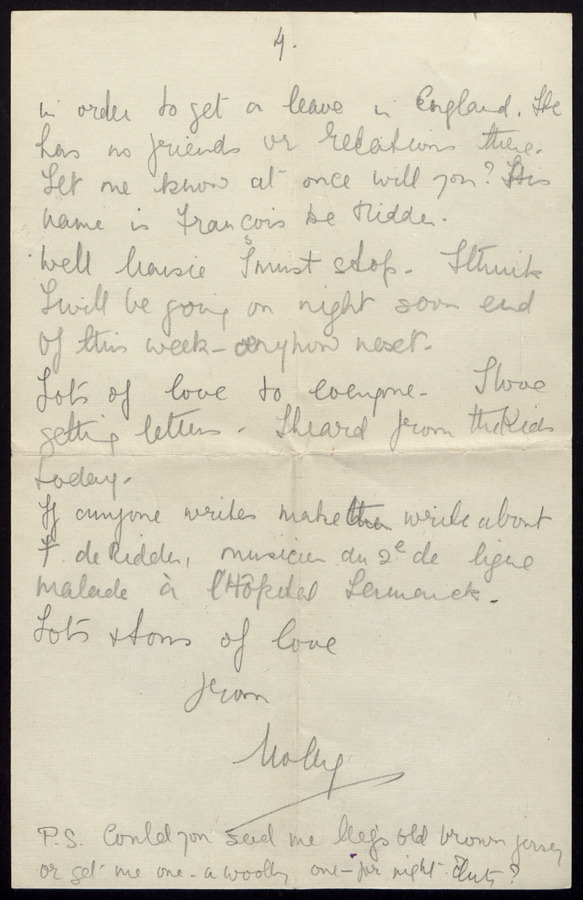 4.
in order to get a leave in England. He
has no friends or relations there.
Let me know at once will you? His
name is François De Ridder.
Well Maisie I must stop. I think
I will be going on night soon end
of this week - anyhow next.
Lots of love to everyone - I love
getting letters. I heard from the Kids
today.
If anyone writes make them write about
F. de Ridder, musicien du 2e de ligne
malade à l'Hôpital
Lots & tons of love
from
Molly
P.S. Could you send me Meg's old brown jersey
or get me one - a woolly one - for night duty?